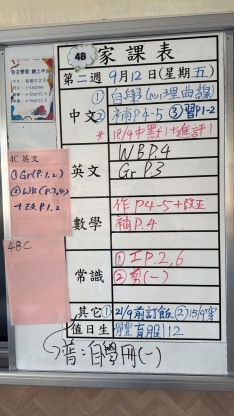 4B
家課表
第二週 9月12日(星期五)
中文
①自學(一)埋曲線
②補P4-5 ③習P1-2
*18/9中默1+進評1
英文
WB P.4
Gr P.3
數學
作P4-5+改正
補P.4
常識
①工P.2,6
②剪(一)
其它
①21/9前訂飯 ②15/9
值日生
體育服 12
普:自學冊(一)
4C 英文
①Gr(P.1,2)
②WB(P.3,4)
P.1.2
4BC